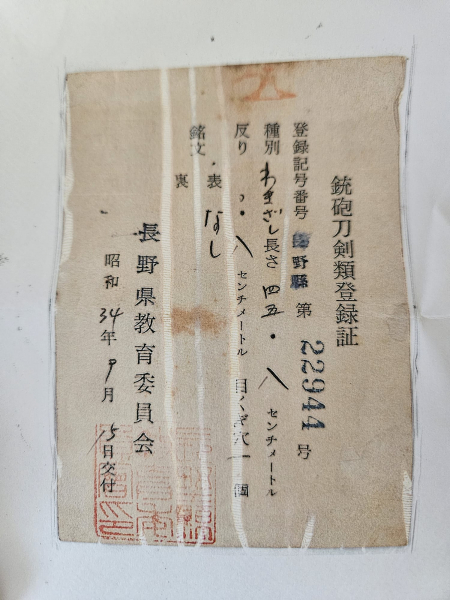 銃砲刀剣類登録証
登録記号番号 長野縣 第 22944 号
種別 わきざし 長さ 四五・八 センチメートル
反り ・八 センチメートル 目くぎ穴 一 個
銘文 ・表 なし
裏
長野県教育委員会
昭和 34年 9月 15日交付